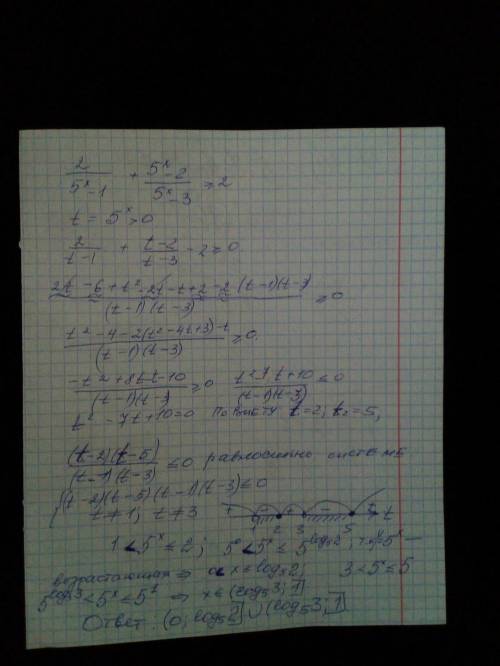 2/(5^x-1) + (5^x-2)/(5^x-3) ≥ 2
t = 5^x > 0
2/(t-1) + (t-2)/(t-3) - 2 ≥ 0
(2t - 6 + t² - 2t - t + 2 - 2(t-1)(t-3))/((t-1)(t-3)) ≥ 0
(t² - 4 - 2(t² - 4t + 3) - t)/((t-1)(t-3)) ≥ 0
(-t² + 8t - t - 10)/((t-1)(t-3)) ≥ 0 (t² - 7t + 10)/((t-1)(t-3)) ≤ 0
t² - 7t + 10 = 0 по Виету t = 2; t₂ = 5,
((t-2)(t-5))/((t-1)(t-3)) ≤ 0 равносильно системе
{(t-2)(t-5)(t-1)(t-3) ≤ 0
t ≠ 1; t ≠ 3 + - + - + 1 2 3 5 t
1 < 5^x ≤ 2; 5^0 < 5^x ≤ 5^(log₅2), т.к. 5^x —
возрастающая ⇒ 0 < x ≤ log₅2; 3 < 5^x ≤ 5
5^(log₅3) < 5^x ≤ 5^1 ⇒ x ∈ (log₅3; 1]
Ответ: (0; log₅2] ∪ (log₅3; 1]